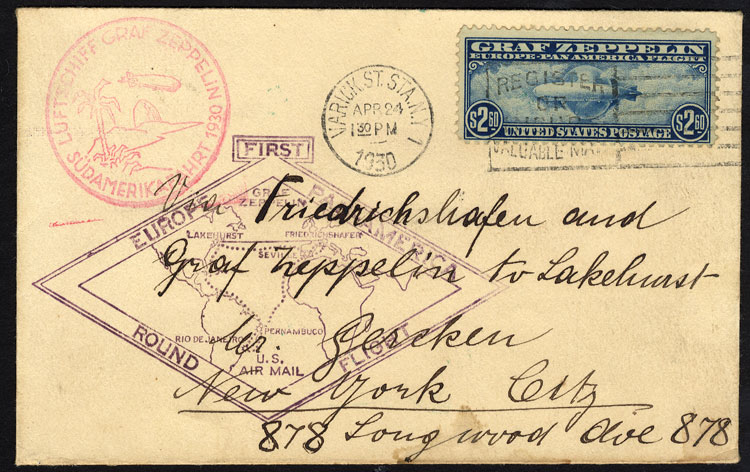 LUFTSCHIFF GRAF ZEPPELIN
SÜDAMERIKAFAHRT 1930
VARICK ST. STA. N.Y.
APR 24
1 30 PM
1930
GRAF ZEPPELIN
EUROPE-PAN AMERICA FLIGHT
$2 60
UNITED STATES POSTAGE
$2 60
REGISTER
OR
VALUABLE MA
FIRST
EUROPE
PAN AMERICA
ROUND
FLIGHT
GRAF
ZEPPELIN
LAKEHURST
FRIEDRICHSHAFEN
SEVILLE
RIO DE JANEIRO
PERNAMBUCO
U.S.
AIR MAIL
Via Friedrichshafen and
Graf Zeppelin to Lakehurst
Gercken
New York City
878 Longwood Ave 878